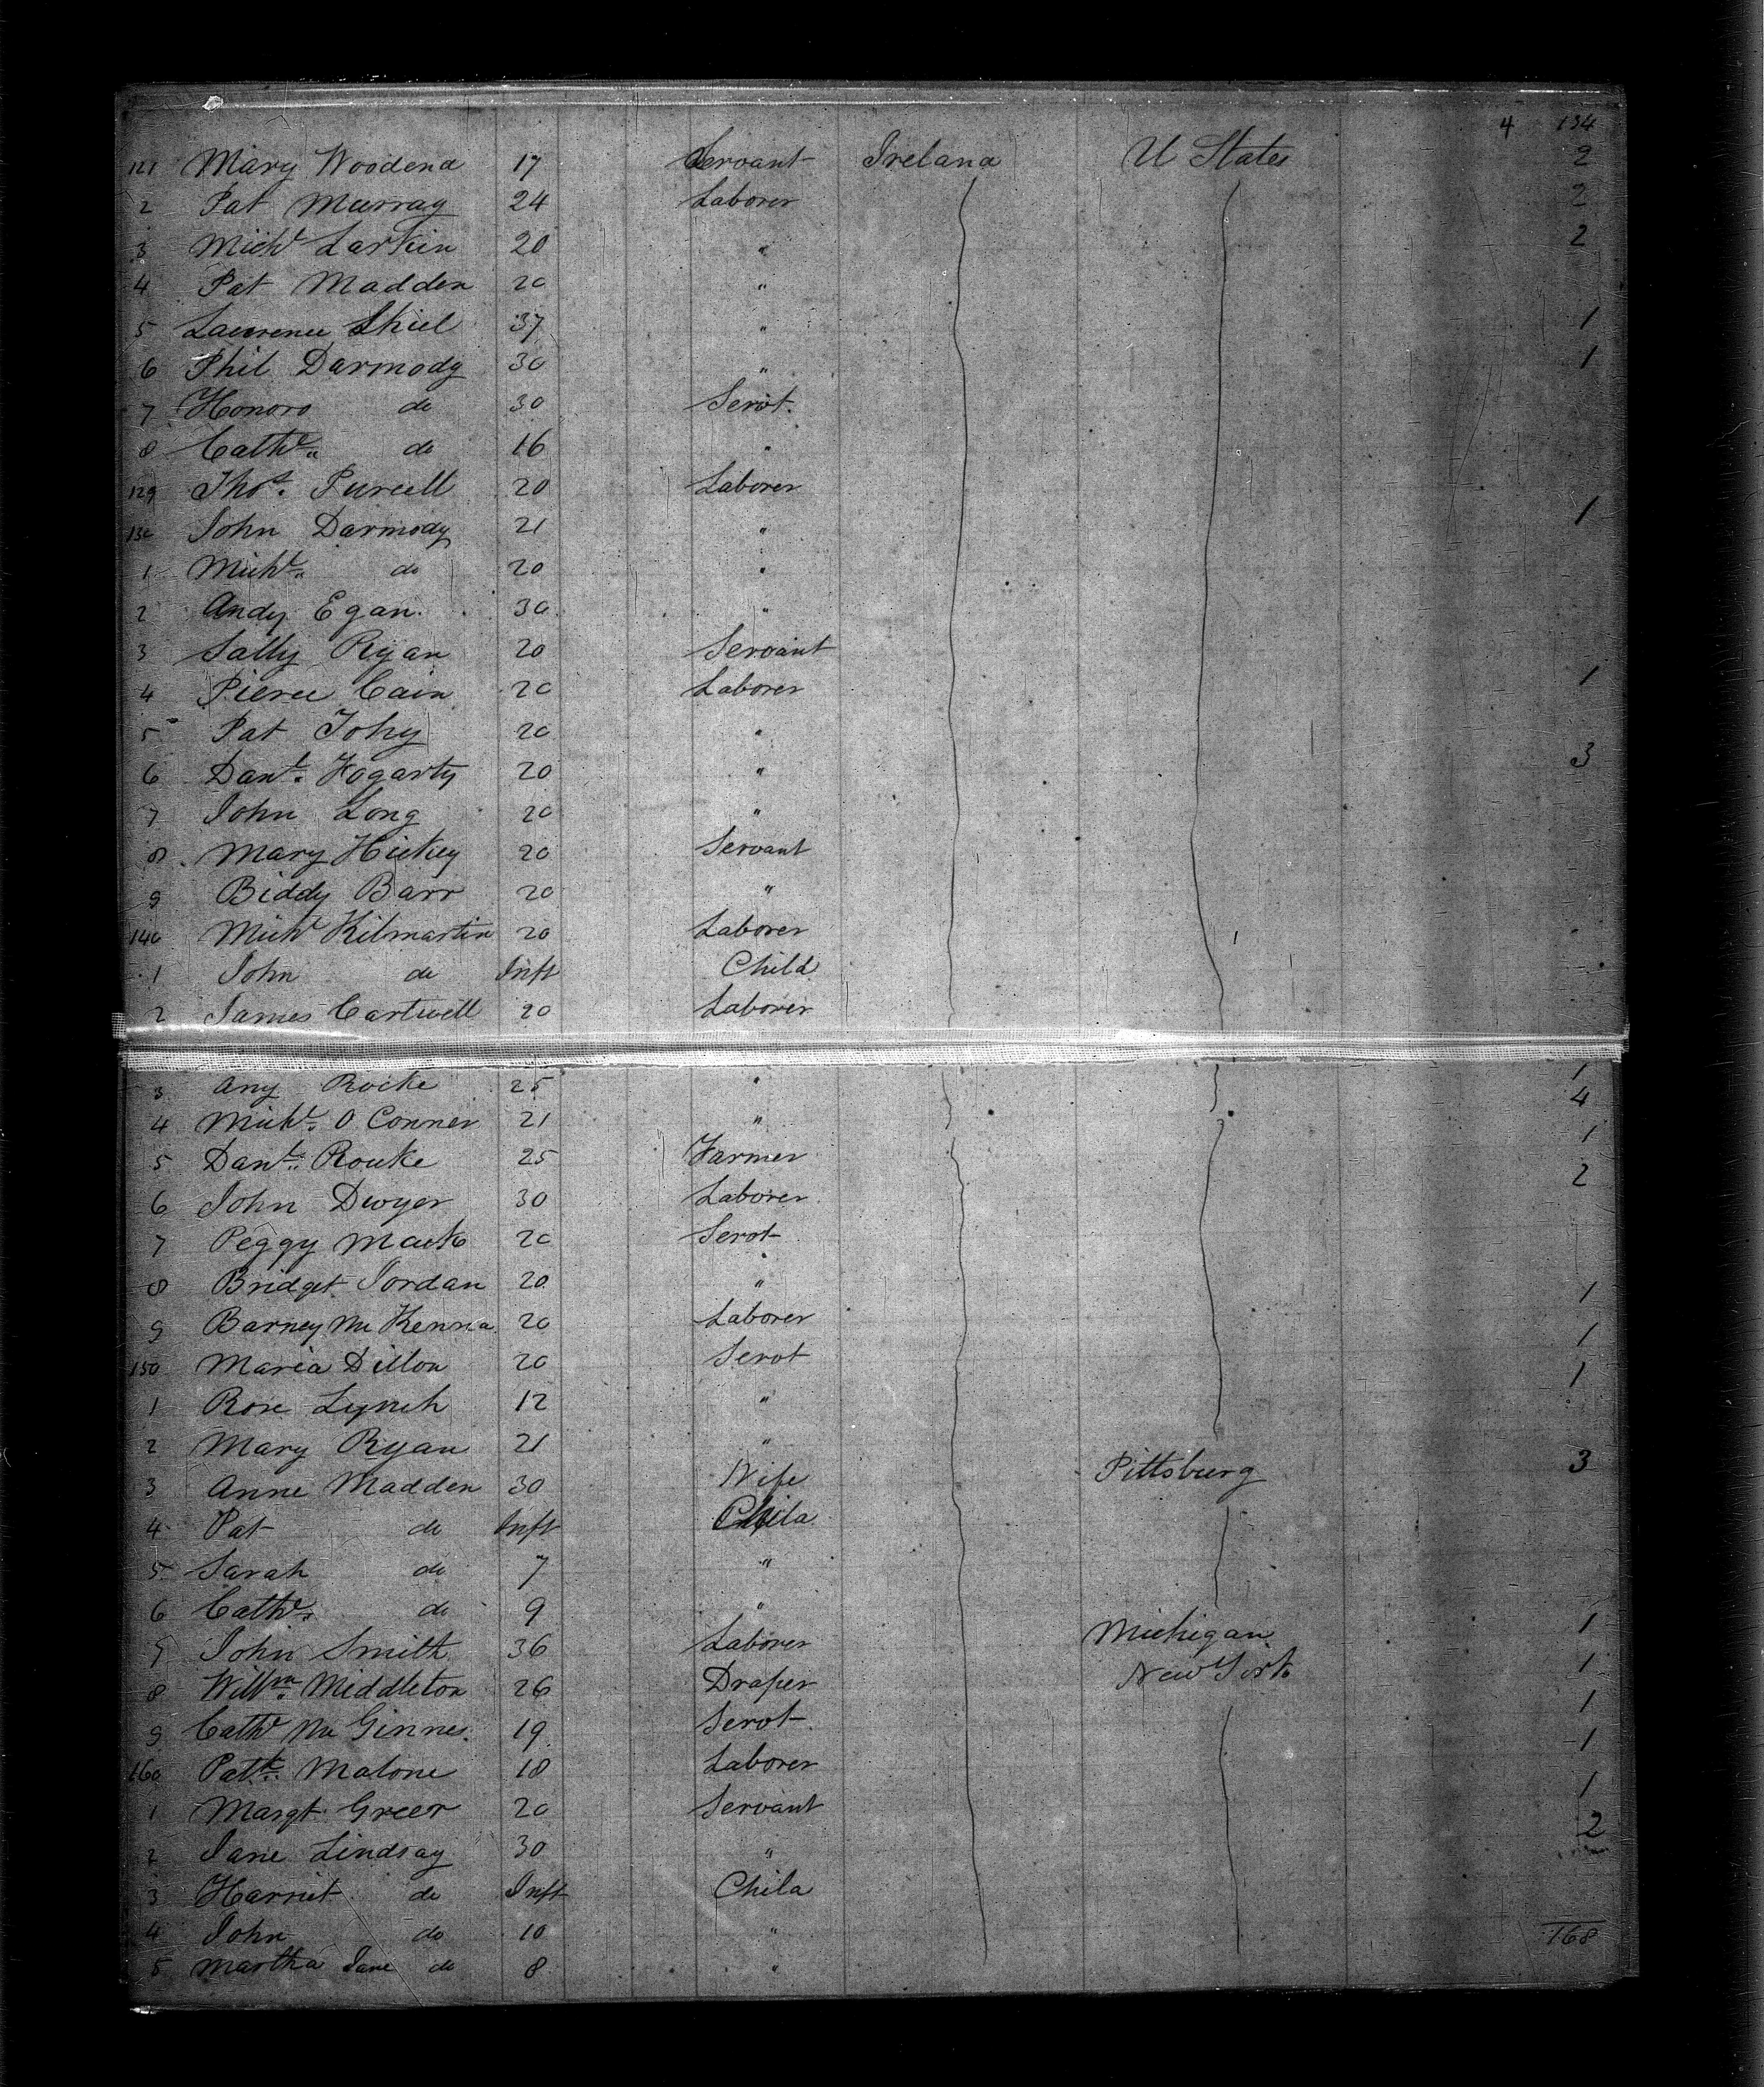 4 134
121 Mary Woodend 17 Servant Ireland U States 2
2 Pat Murray 24 Laborer 2
3 Michl Larkin 20 " 2
4 Pat Madden 20 "
5 Lawrence Shiel 37 " 1
6 Phil Darmody 30 " 1
7 Honoro do 30 Servt.
8 Cathe do 16 "
129 Thos. Purcell 20 Laborer
130 John Darmody 21 " 1
1 Michl. do 20 "
2 Andy Egan 30 "
3 Sally Ryan 20 Servant
4 Pierce Cain 20 Laborer 1
5 Pat Tohy 20 "
6 Danl. Fogarty 20 " 3
7 John Long 20 "
8 Mary Hickey 20 Servant
9 Biddy Barr 20 "
140 Michl Kilmartin 20 Laborer
1 John do Inft Child
2 James Cartwell 20 Laborer
3 Any Rocke 25 " 1
4 Michl. O Conner 21 " 4
5 Danl. Rouke 25 Farmer 1
6 John Dwyer 30 Laborer 2
7 Peggy 20 Servt
8 Bridget Jordan 20 "
9 Barney Mc Kenna 20 Laborer 1
150 Maria Dillon 20 Servt 1
1 Rose Lynch 12 " 1
2 Mary Ryan 21 "
3 Anne Madden 30 Wife Pittsburg 3
4 Pat do Inft Child
5 Sarah do 7 "
6 Cathe. do 9 "
7 John Smith 36 Laborer Michigan 1
8 Willm. Middleton 26 Draper New York 1
9 Cathe Mc Ginnes 19 Servt 1
160 Patk. Malone 18 Laborer 1
1 Margt Greer 20 Servant 1
2 Jane Lindsay 30 " 2
3 Harriet do Inft Child
4 John do 10 " 168
5 Martha Jane do 8 "